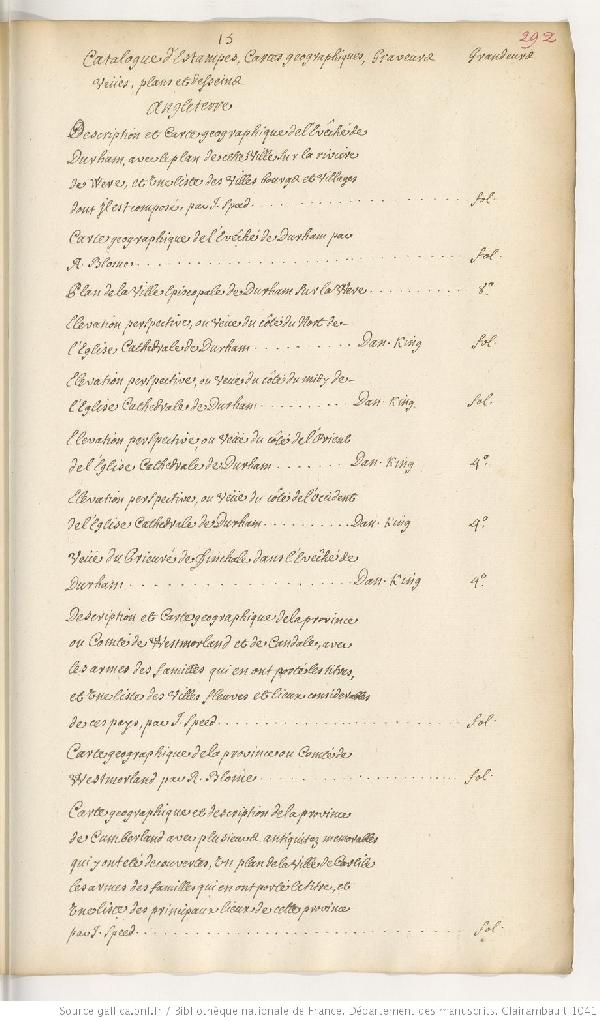 15
292
Catalogue d'Estampes, Cartes geographiques, Graveures Grandeurs
Veües, plans et desseins
Angleterre
Description et Carte geographique de l'Evêché de
Durham, avec le plan de cette Ville sur la riviere
de Were, et Une liste des Villes bourgs et Villages
dont Il est composé, par J. Sped. fol.
Carte geographique de l'Evêché de Durham par
R. Blome fol.
Plan de la Ville Episcopale de Durham sur la Were 8º
Elevation perspective, ou Veüe du côté du Nort de
l'Eglise Cathedrale de Durham Dan. King fol.
Elevation perspective, ou Veüe du côté du midy de
l'Eglise Cathedrale de Durham Dan. King. fol.
Elevation perspective ou Veüe du côté de l'Orient
de l'Eglise Cathedrale de Durham Dan. King 4º
Elevation perspective, ou Veüe du côté de l'occident
de l'Eglise Cathedrale de Durham Dan. King 4º
Veüe du Prieuré de Finchale dans l'Evêché de
Durham Dan. King 4º
Description et Carte geographique de la province
ou Comté de Westmorland et de Candale, avec
les armes des familles qui en ont porté les titres,
et Une liste des Villes fleuves et lieux considerables
de ces pays, par J. Speed fol.
Carte geographique de la province ou Comté de
Westmorland par R. Blome fol.
Carte geographique et description de la province
de Cumberland avec plusieurs antiquitez memorables
qui y ont été decouvertes, Un plan de la Ville de Carlile
les armes des familles qui en ont porté le titre, et
Une liste des principaux lieux de cette province
par J. Speed fol.
Source gallica.bnf.fr / Bibliothèque nationale de France. Département des manuscrits. Clairambault 1041